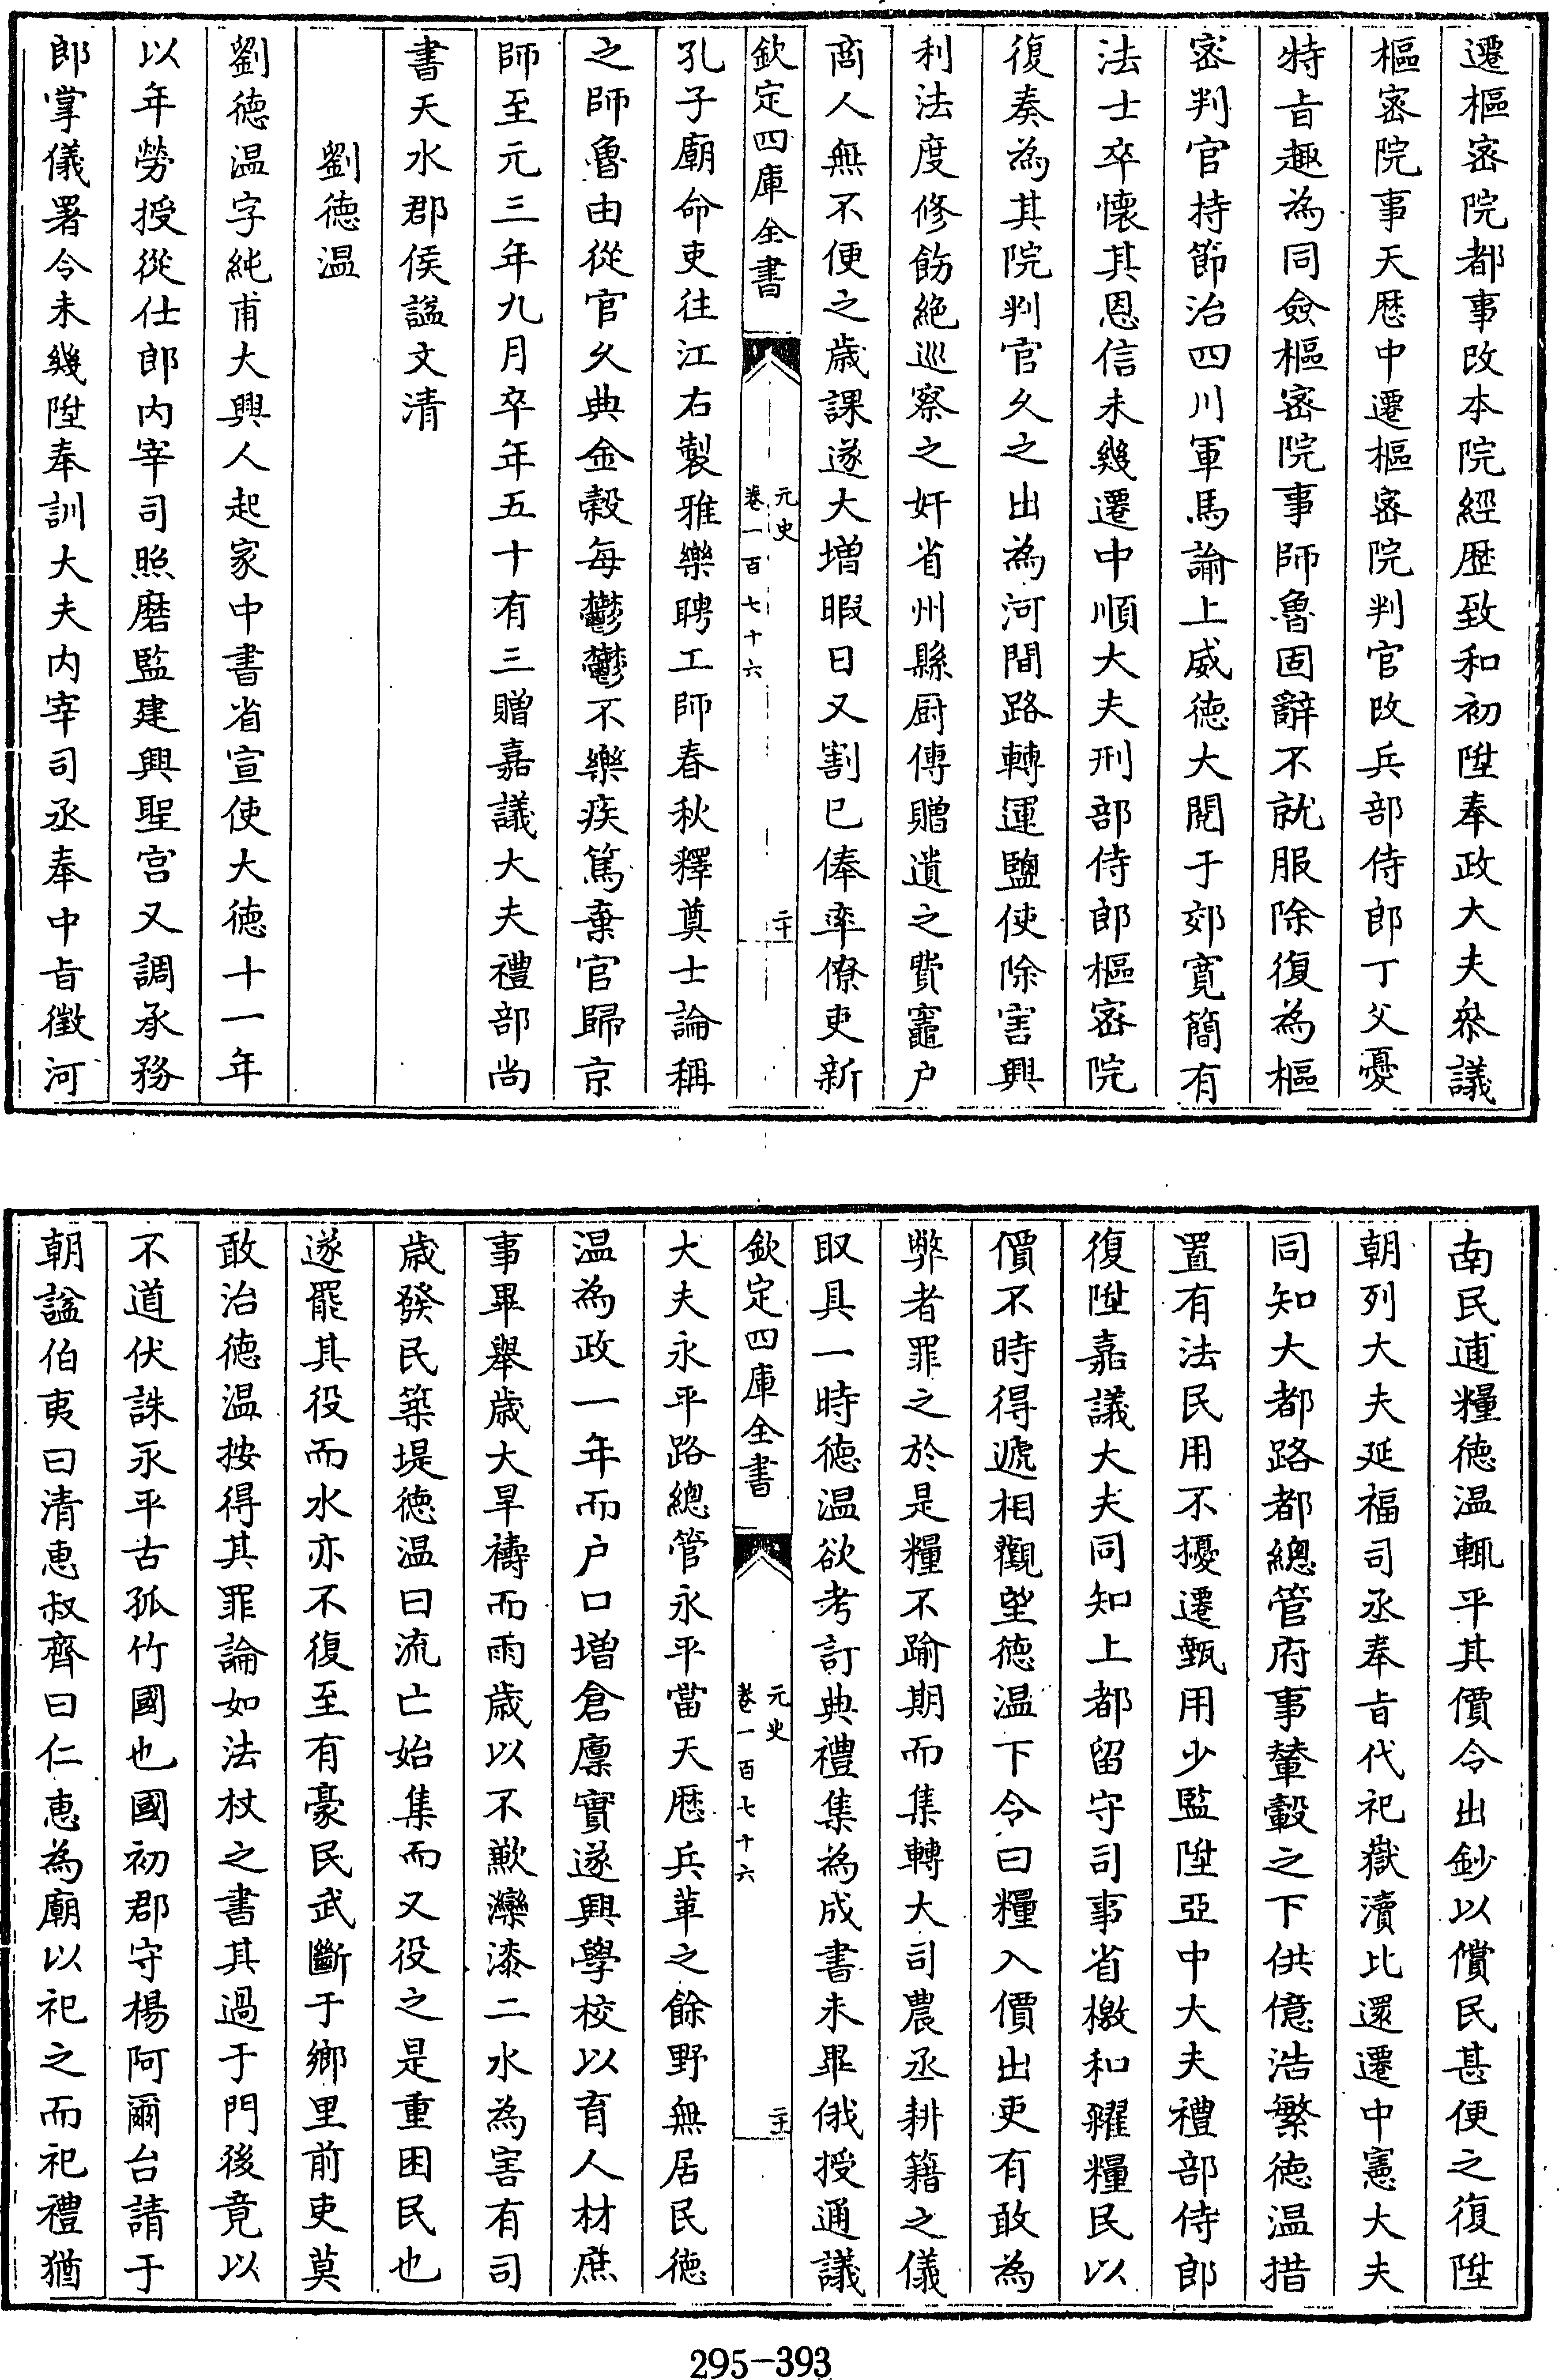 遷樞密院都事改本院經歴致和初陞奉政大夫叅議
樞密院事天厯中遷樞密院判官改兵部侍郎丁父憂
特㫖趣為同僉樞密院事師魯固辭不就服除復為樞
密判官持節治四川軍馬諭上威徳大閱于郊寛簡有
法士卒懷其恩信未幾遷中順大夫刑部侍郎樞密院
復奏為其院判官乆之出為河間路轉運鹽使除害興
利法度修飭絶巡察之奸省州縣厨傳贈遺之費竈户
商人無不便之嵗課遂大増暇日又割已俸率僚吏新
欽定四庫全書
元史
卷一百七十六
二十
孔子廟命吏往江右製雅樂聘工師春秋釋奠士論稱
之師魯由從官乆典金榖每鬱鬱不樂疾篤棄官歸京
師至元三年九月卒年五十有三贈嘉議大夫禮部尚
書天水郡侯諡文清
劉徳温
劉徳温字純甫大興人起家中書省宣使大徳十一年
以年勞授從仕郎内宰司照磨監建興聖宫又調承務
郎掌儀署令未幾陞奉訓大夫内宰司丞奉中㫖徴河
南民逋糧徳温輒平其價令出鈔以償民甚便之復陞
朝列大夫延福司丞奉㫖代祀嶽瀆比還遷中憲大夫
同知大都路都總管府事輦轂之下供億浩繁徳温措
置有法民用不擾遷甄用少監陞亞中大夫禮部侍郎
復陞嘉議大夫同知上都留守司事省檄和糴糧民以
價不時得遞相觀望徳温下令曰糧入價出吏有敢為
弊者罪之於是糧不踰期而集轉大司農丞耕籍之儀
取具一時徳温欲考訂典禮集為成書未畢俄授通議
欽定四庫全書
元史
卷一百七十六
二十
大夫永平路總管永平當天厯兵革之餘野無居民徳
温為政一年而户口増倉廪實遂興學校以育人材庶
事畢舉嵗大旱禱而雨嵗以不歉灤漆二水為害有司
嵗發民築堤徳温曰流亡始集而又役之是重困民也
遂罷其役而水亦不復至有豪民武斷于鄉里前吏莫
敢治徳温按得其罪論如法杖之書其過于門後竟以
不道伏誅永平古孤竹國也國初郡守楊阿爾台請于
朝諡伯夷曰清恵叔齊曰仁恵為廟以祀之而祀禮猶
295-393